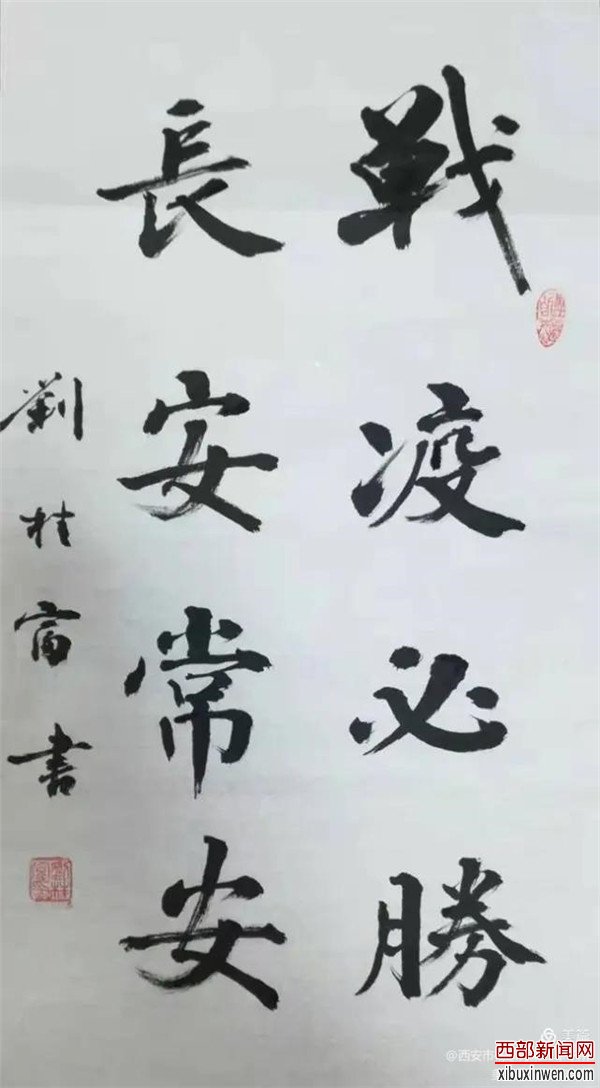 戰疫必勝
長安常安
劉桂富書
@西安市
西部新闻网
xibuxinwen.com